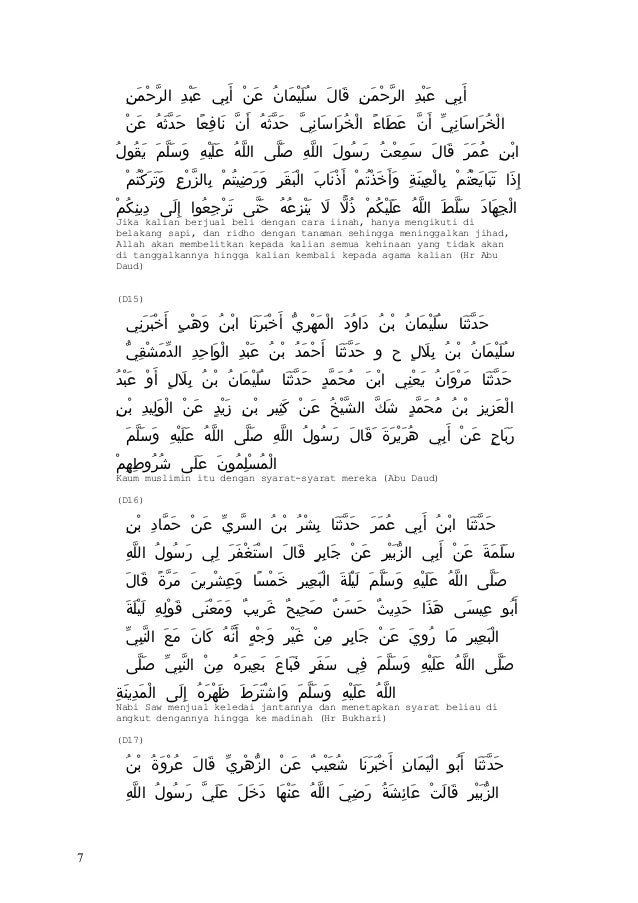 أَبِي عَبْدِ الرَّحْمَنِ قَالَ سُلَيْمَانُ عَنْ أَبِي عَبْدِ الرَّحْمَنِ
الْخُرَاسَانِيِّ أَنَّ عَطَاءً الْخُرَاسَانِيَّ حَدَّثَهُ أَنَّ نَافِعًا حَدَّثَهُ عَنْ
ابْنِ عُمَرَ قَالَ سَمِعْتُ رَسُولَ اللَّهِ صَلَّى اللَّهُ عَلَيْهِ وَسَلَّمَ يَقُولُ
إِذَا تَبَايَعْتُمْ بِالْعِينَةِ وَأَخَذْتُمْ أَذْنَابَ الْبَقَرِ وَرَضِيتُمْ بِالزَّرْعِ وَتَرَكْتُمْ
الْجِهَادَ سَلَّطَ اللَّهُ عَلَيْكُمْ ذُلًّا لَا يَنْزِعُهُ حَتَّى تَرْجِعُوا إِلَى دِينِكُمْ
Jika kalian berjual beli dengan cara iinah, hanya mengikuti di
belakang sapi, dan ridho dengan tanaman sehingga meninggalkan jihad,
Allah akan membelitkan kepada kalian semua kehinaan yang tidak akan
di tanggalkannya hingga kalian kembali kepada agama kalian (Hr Abu
Daud)
(D15)
حَدَّثَنَا سُلَيْمَانُ بْنُ دَاوُدَ الْمَهْرِيُّ أَخْبَرَنَا ابْنُ وَهْبٍ أَخْبَرَنِي
سُلَيْمَانُ بْنُ بِلَالٍ ح و حَدَّثَنَا أَحْمَدُ بْنُ عَبْدِ الْوَاحِدِ الدِّمَشْقِيُّ
حَدَّثَنَا مَرْوَانُ يَعْنِي ابْنَ مُحَمَّدٍ حَدَّثَنَا سُلَيْمَانُ بْنُ بِلَالٍ أَوْ عَبْدُ
الْعَزِيزِ بْنُ مُحَمَّدٍ شَكَّ الشَّيْخُ عَنْ كَثِيرِ بْنِ زَيْدٍ عَنْ الْوَلِيدِ بْنِ
رَبَاحٍ عَنْ أَبِي هُرَيْرَةَ قَالَ رَسُولُ اللَّهِ صَلَّى اللَّهُ عَلَيْهِ وَسَلَّمَ
الْمُسْلِمُونَ عَلَى شُرُوطِهِمْ
Kaum muslimin itu dengan syarat-syarat mereka (Abu Daud)
(D16)
حَدَّثَنَا ابْنُ أَبِي عُمَرَ حَدَّثَنَا بِشْرُ بْنُ السَّرِيِّ عَنْ حَمَّادِ بْنِ
سَلَمَةَ عَنْ أَبِي الزُّبَيْرِ عَنْ جَابِرٍ قَالَ اسْتَغْفَرَ لِي رَسُولُ اللَّهِ
صَلَّى اللَّهُ عَلَيْهِ وَسَلَّمَ لَيْلَةَ الْبَعِيرِ خَمْسًا وَعِشْرِينَ مَرَّةً قَالَ
أَبُو عِيسَى هَذَا حَدِيثٌ حَسَنٌ صَحِيحٌ غَرِيبٌ وَمَعْنَى قَوْلِهِ لَيْلَةَ
الْبَعِيرِ مَا رُوِيَ عَنْ جَابِرٍ مِنْ غَيْرِ وَجْهٍ أَنَّهُ كَانَ مَعَ النَّبِيِّ
صَلَّى اللَّهُ عَلَيْهِ وَسَلَّمَ فِي سَفَرٍ فَبَاعَ بَعِيرَهُ مِنْ النَّبِيِّ صَلَّى
اللَّهُ عَلَيْهِ وَسَلَّمَ وَاشْتَرَطَ ظَهْرَهُ إِلَى الْمَدِينَةِ
Nabi Saw menjual keledai jantannya dan menetapkan syarat beliau di
angkut dengannya hingga ke madinah (Hr Bukhari)
(D17)
حَدَّثَنَا أَبُو الْيَمَانِ أَخْبَرَنَا شُعَيْبٌ عَنْ الزُّهْرِيِّ قَالَ عُرْوَةُ بْنُ
الزُّبَيْرِ قَالَتْ عَائِشَةُ رَضِيَ اللَّهُ عَنْهَا دَخَلَ عَلَيَّ رَسُولُ اللَّهِ
7